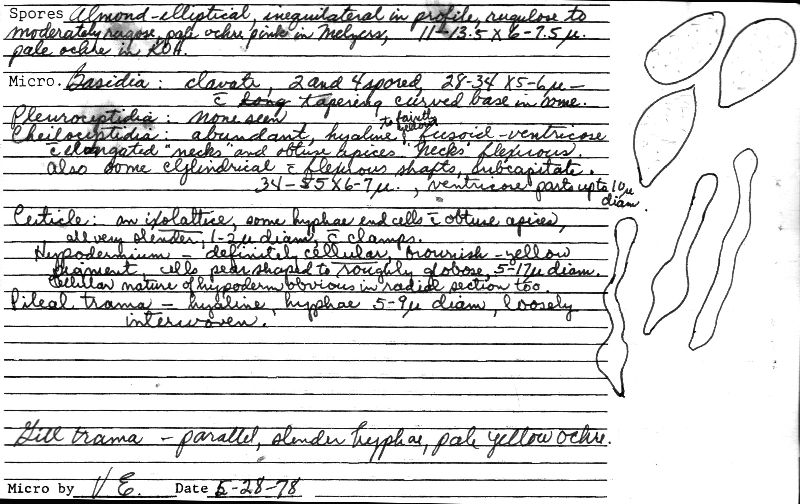 Spores Almond-elliptical, inequilateral in profile, rugulose to
moderately rugose, pale ochre pink in Melzers, 11-13.5 X 6-7.5 µ.
pale ochre in KOH.
Micro. Basidia: clavate, 2 and 4 spored, 28-34 X5-6µ -
c̄ long tapering curved base in some.
Pleurocystidia: none seen
to faintly
yellow
Cheilocystidia: abundant, hyaline, fusoid-ventricose
c̄ elongated "necks" and obtuse apices "necks" flexuous.
also some cylindrical c̄ flexuous shafts, subcapitate.
34-55X6-7µ., ventricose parts up to 10µ
diam.
Cuticle: an ixolattice, some hyphae end cells c̄ obtuse apices,
all very slender, 1-2µ diam, c̄ clamps.
Hypodermium - definitely cellular, brownish-yellow
pigment, cells pear shaped to roughly globose, 5-17µ diam.
Cellular nature of hypoderm obvious in radial section too.
Pileal trama - hyaline, hyphae 5-9µ diam, loosely
interwoven.
Gill trama - parallel, slender hyphae, pale yellow ochre.
Micro by VE. Date 5-28-78